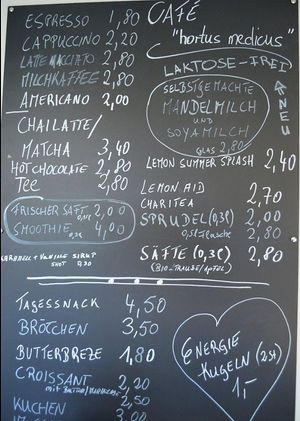 ESPRESSO 1,80
CAPPUCCINO 2,20
LATTE MACCIATO 2,80
MILCHKAFFEE 2,80
AMERICANO 2,00
CHAILATTE/
MATCHA 3,40
HOT CHOCOLATE 2,80
TEE 2,80
FRISCHER SAFT 2,00
SMOOTHIE 4,00
KARAMELL + VANILLE SIRUP
SHOT 0,30
CAFÉ
"hortus medicus"
LAKTOSE-FREI
NEU
SELBSTGEMACHTE
MANDELMILCH
UND
SOYAMILCH
GLAS 2,80
LEMON SUMMER SPLASH 2,40
LEMON AID
CHARITEA 2,70
SPRUDEL (0,3l) 2,00
0,5l FLASCHE 2,80
SÄFTE (0,3l) 2,80
(BIO-TRAUBE/APFEL)
TAGESSNACK 4,50
BRÖTCHEN 3,50
BUTTERBREZE 1,80
CROISSANT 2,20
MIT BUTTER/MARMELADE 2,50
KUCHEN 3,00
ENERGIE
KUGELN (2St)
1,-